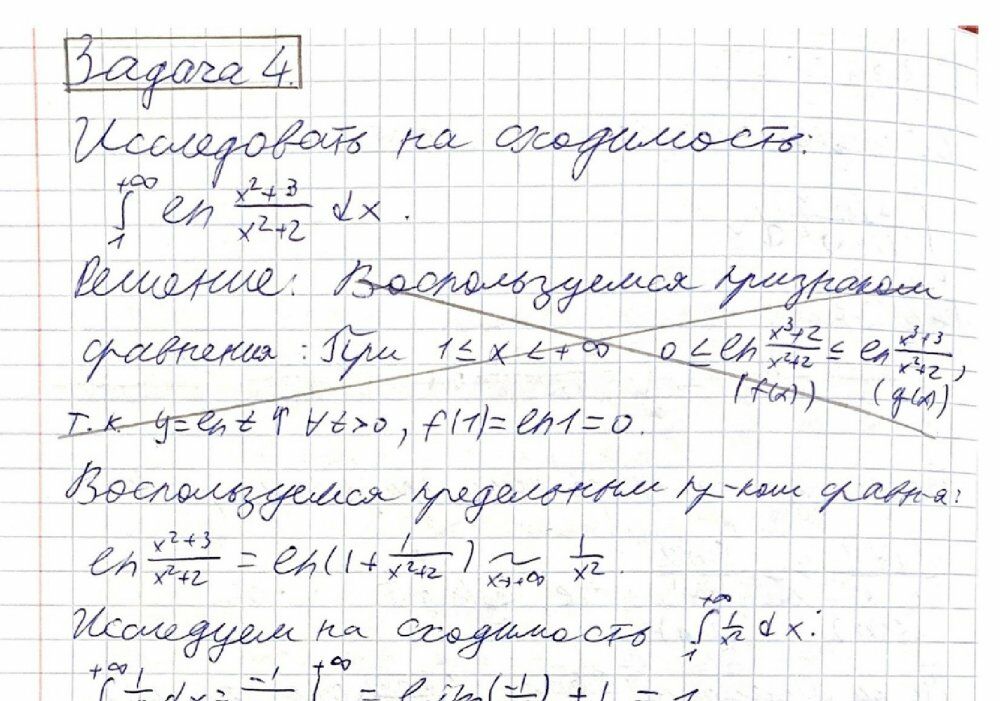 Задача 4.
Исследовать на сходимость:
∫₁^{+∞} ln (x²+3)/(x²+2) dx.
Решение: Воспользуемся признаком
сравнения: При 1 ≤ x < +∞ 0 ≤ ln (x³+2)/(x²+2) ≤ ln (x³+3)/(x²+2),
(f(x)) (g(x))
т.к. y = ln t ↑ ∀t>0, f(1) = ln1 = 0.
Воспользуемся предельным пр-ком сравн-я:
ln (x²+3)/(x²+2) = ln(1 + 1/(x²+2)) ~_{x→+∞} 1/x².
Исследуем на сходимость ∫₁^{+∞} 1/x² dx: